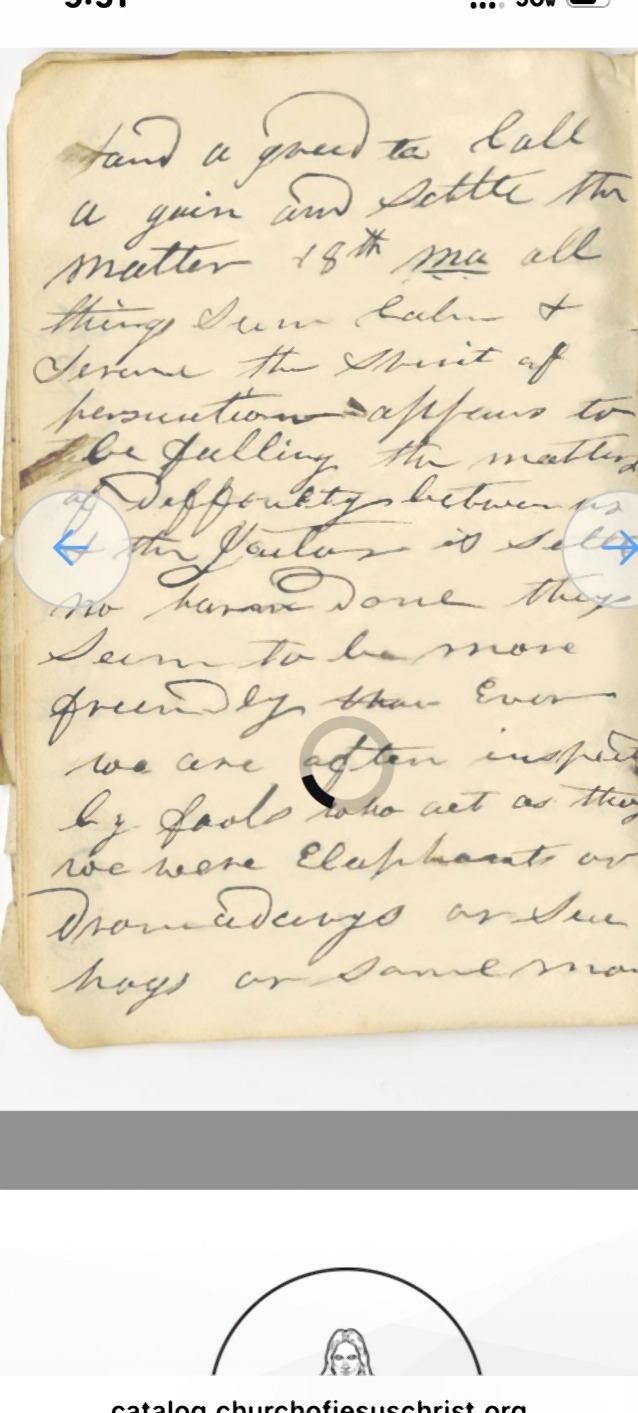 and a greed to Call
a gain and settle the
matter 18th ma all
things Seem Calm &
Serene the Spirit of
persecution appears to
be falling the matters
of Deffoulty between us
the Jailor is Settl
no harm Done they
Seem to be more
freendly than Ever
we are often inspect
by fools who act as thoug
we were Elephants or
Dromadarys or Sea
hogs or Some mon
catalog.churchofjesuschrist.org